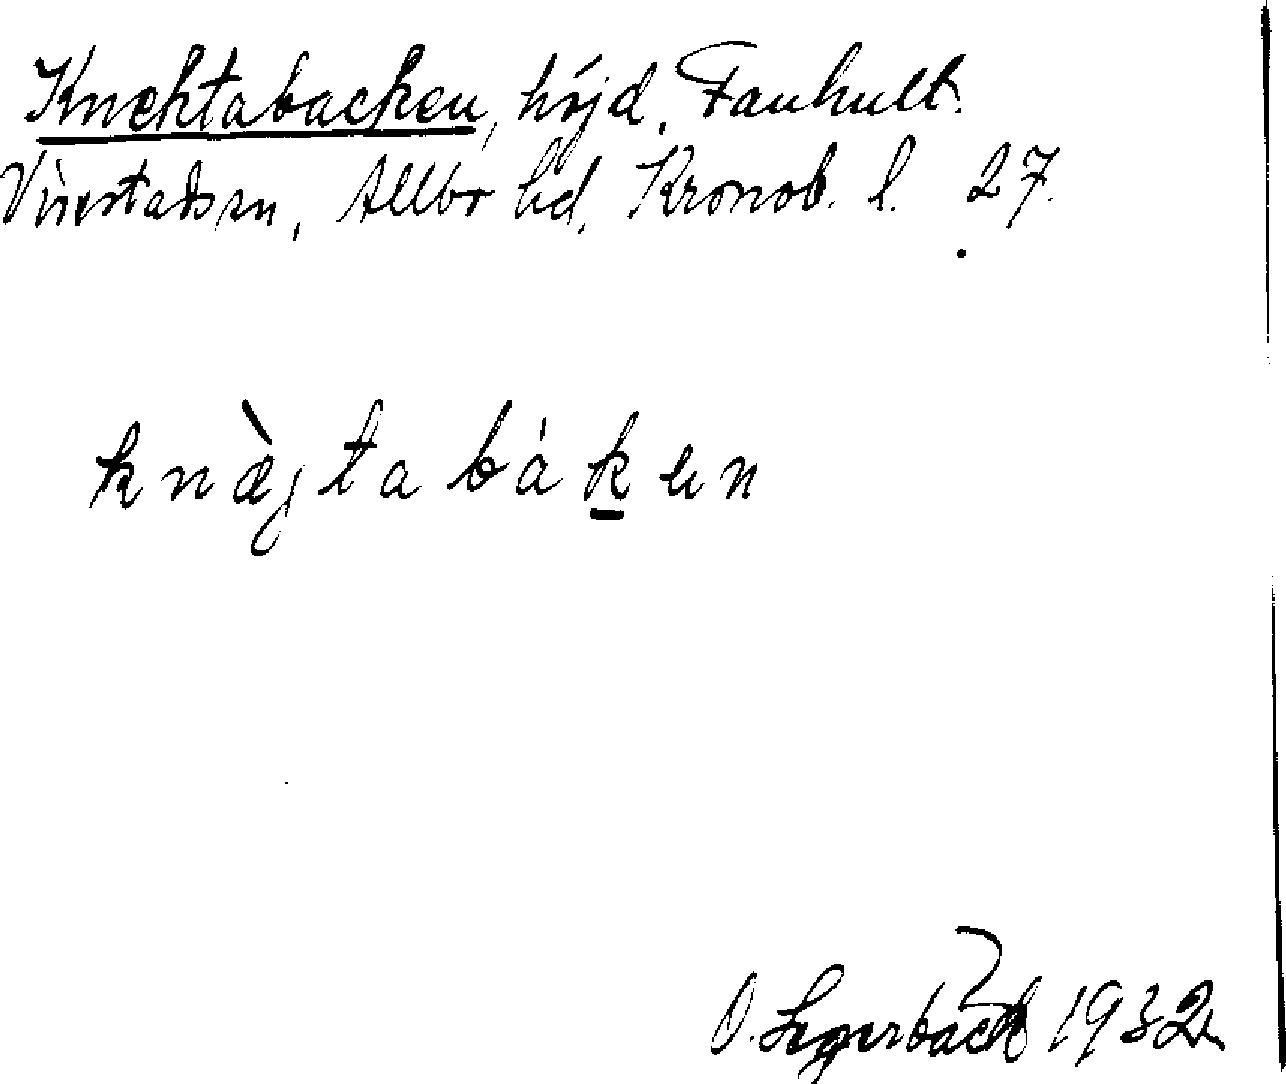 Knektabacken, höjd, Fanhult.
Virestads sn, Allbo hd, Kronob. l. 27.
knæ̀jtabáken
O. Segerbäck 1932